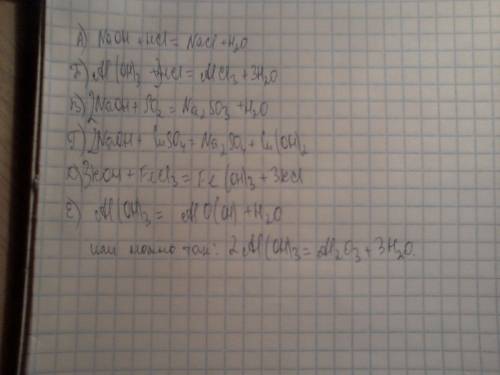 А) NaOH + HCl = NaCl + H₂O
Б) Al(OH)₃ + 3HCl = AlCl₃ + 3H₂O
В) 2NaOH + SO₂ = Na₂SO₃ + H₂O
Г) 2NaOH + CuSO₄ = Na₂SO₄ + Cu(OH)₂
Д) 3KOH + FeCl₃ = Fe(OH)₃ + 3KCl
Е) Al(OH)₃ = AlO(OH) + H₂O
или можно так: 2Al(OH)₃ = Al₂O₃ + 3H₂O.